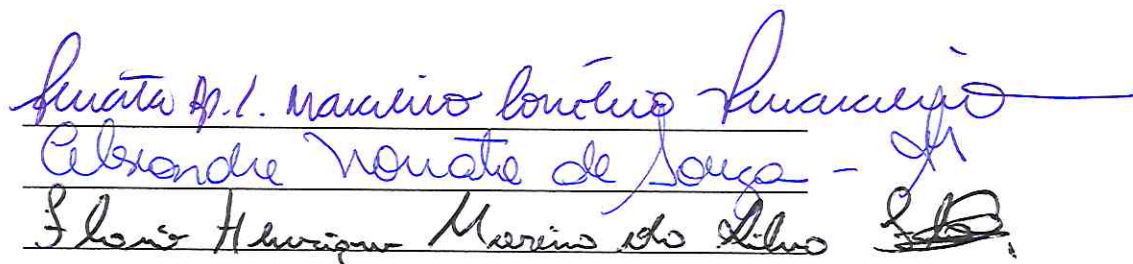 Renata Ap. L. Marcelino Cornélio
Alexandre Nonato de Souza -
Flavio Henrique Marino da Silva